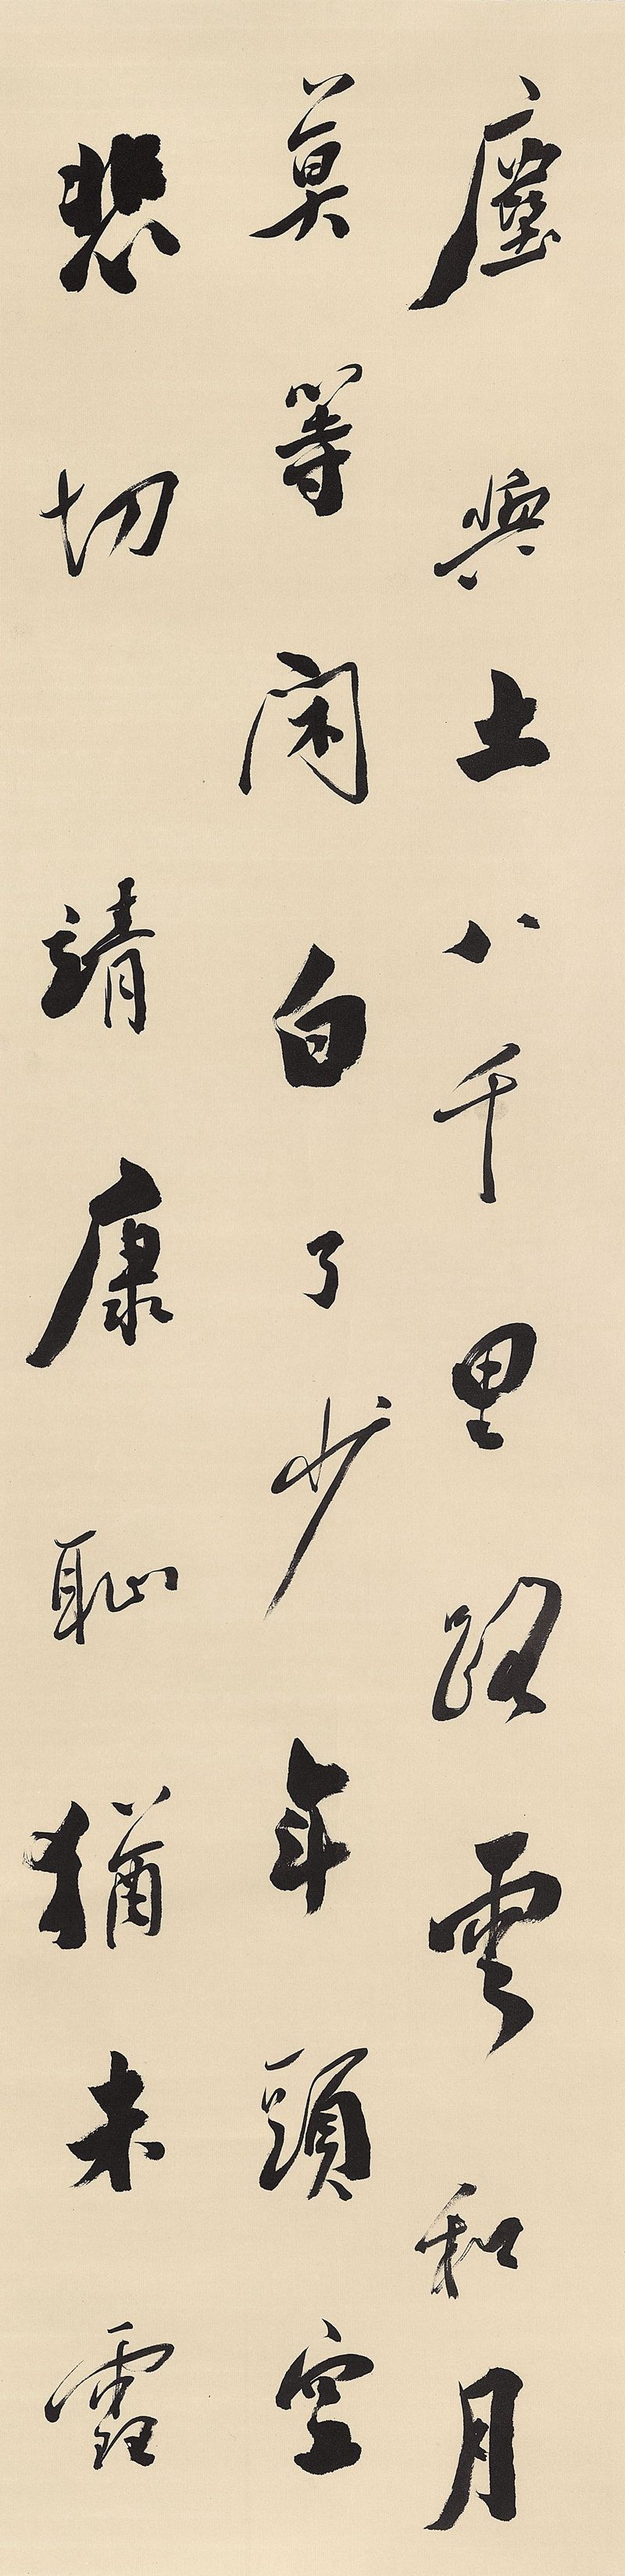 塵與土八千里路雲和月
莫等閑白了少年頭空
悲切靖康恥猶未雪